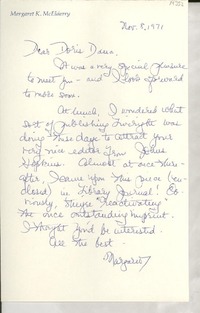 Margaret K. McElderry
Nov. 8, 1971
Dear Doris Dana,
It was a very special pleasure
to meet you - and I look forward
to more soon.
At lunch, I wondered what
sort of publishing
doing these days to attract your
very nice editor from Johns
Hopkins. Almost at once there-
after, I came upon this piece (en-
closed) in Library Journal! Ob-
viously, they're "reactivating"
the once outstanding imprint.
I thought you'd be interested.
All the best -
Margaret